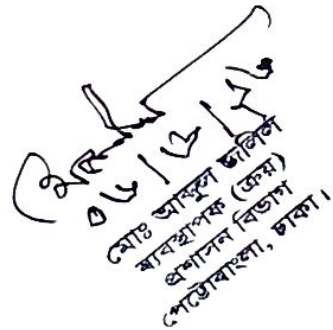 মোঃ আব্দুল জলিল
ব্যবস্থাপক (ক্রয়)
প্রশাসন বিভাগ
পেট্রোবাংলা, ঢাকা।